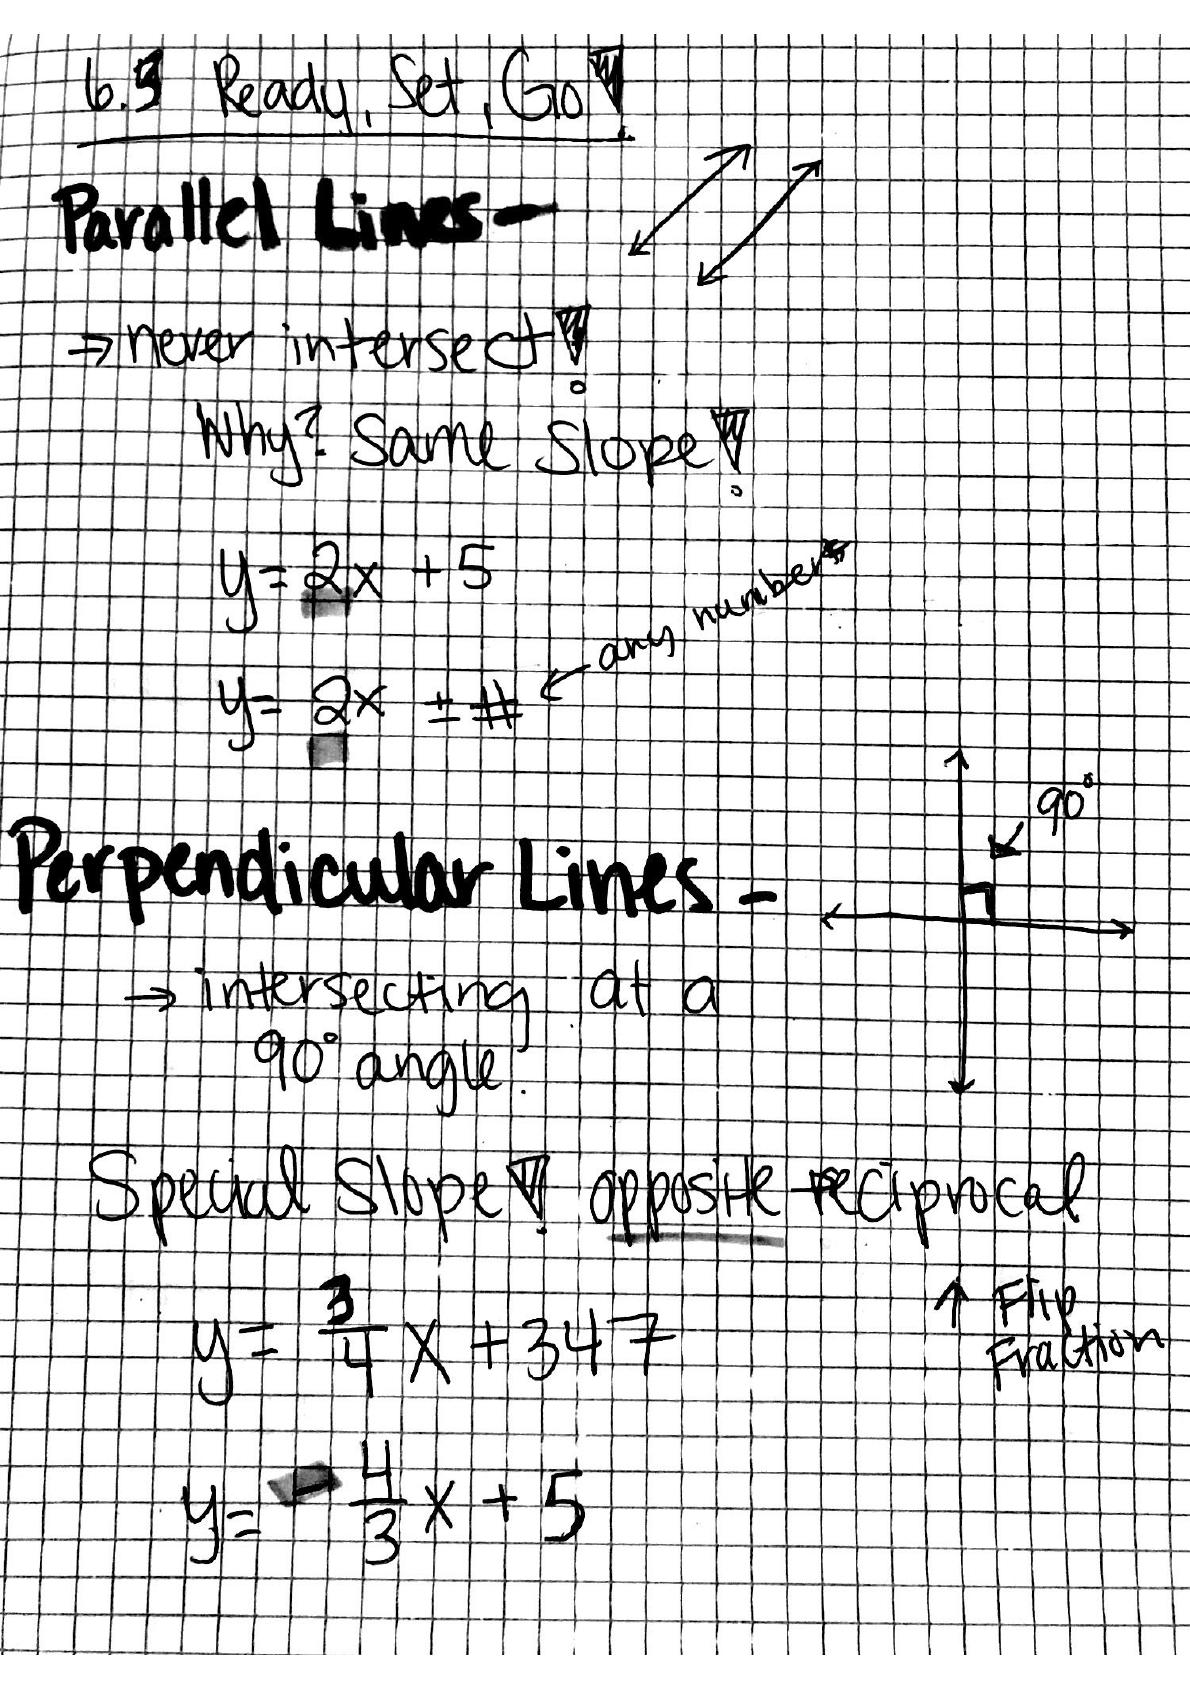 6.3 Ready, Set, Go!
Parallel Lines -
→ never intersect!
Why? Same Slope!
y = 2x + 5
any number
y = 2x ± # ←
90°
Perpendicular Lines -
→ intersecting at a
90° angle.
Special Slope! opposite reciprocal
↑ Flip
Fraction
y = 3/4 x + 347
y = - 4/3 x + 5